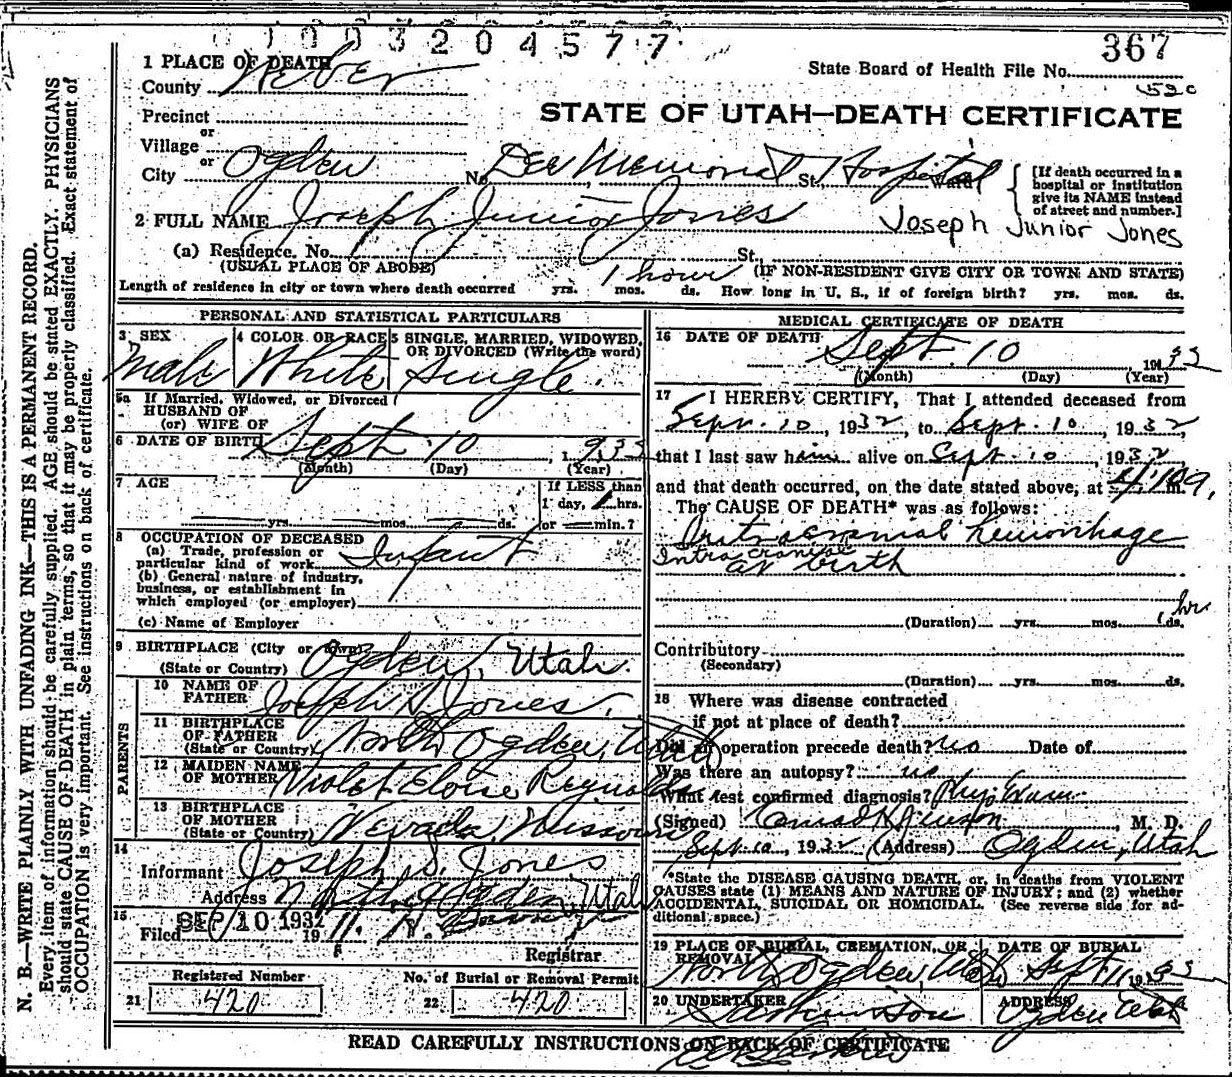 0 1 0 0 3 2 0 4 5 7 7
367
1 PLACE OF DEATH
State Board of Health File No.
County Weber
STATE OF UTAH—DEATH CERTIFICATE
Precinct
or
Village
or
City Ogden No. Dee Memorial St. Hospital Ward
[If death occurred in a
hospital or institution
give its NAME instead
of street and number.]
2 FULL NAME Joseph Junior Jones
Joseph Junior Jones
(a) Residence. No. St.
(USUAL PLACE OF ABODE) (IF NON-RESIDENT GIVE CITY OR TOWN AND STATE)
1 hour
Length of residence in city or town where death occurred yrs. mos. ds. How long in U. S., if of foreign birth? yrs. mos. ds.
PERSONAL AND STATISTICAL PARTICULARS
3 SEX
Male
4 COLOR OR RACE
White
5 SINGLE, MARRIED, WIDOWED,
OR DIVORCED (Write the word)
Single
5a If Married, Widowed, or Divorced
HUSBAND OF
(or) WIFE OF
6 DATE OF BIRTH Sept 10
(Month) (Day) (Year)
7 AGE
yrs. mos. ds.
If LESS than
1 day, 1 hrs.
or min.?
8 OCCUPATION OF DECEASED
(a) Trade, profession or
particular kind of work Infant
(b) General nature of industry,
business, or establishment in
which employed (or employer)
(c) Name of Employer
9 BIRTHPLACE (City or town)
(State or Country) Ogden, Utah.
PARENTS
10 NAME OF
FATHER Joseph S. Jones.
11 BIRTHPLACE
OF FATHER
(State or Country) North Ogden, Utah
12 MAIDEN NAME
OF MOTHER Violet Eloise Reynolds
13 BIRTHPLACE
OF MOTHER
(State or Country) Nevada, Missouri
14
Informant Joseph S. Jones
Address North Ogden, Utah
15 SEP 10 1932
Filed 19
Registrar
Registered Number
21 420
No. of Burial or Removal Permit
22 420
MEDICAL CERTIFICATE OF DEATH
16 DATE OF DEATH Sept 10
(Month) (Day) (Year)
17 I HEREBY CERTIFY, That I attended deceased from
Sept. 10, 1932, to Sept. 10, 1932,
that I last saw him alive on Sept. 10, 1932
and that death occurred, on the date stated above, at m.
The CAUSE OF DEATH* was as follows:
Intracranial hemorrhage
Intracranial
at birth
1 hr
(Duration) yrs. mos. ds.
Contributory
(Secondary)
(Duration) yrs. mos. ds.
18 Where was disease contracted
if not at place of death?
Did an operation precede death? no Date of
Was there an autopsy? no
What test confirmed diagnosis? Phys. Exam.
(Signed) Conrad H. Jenson, M. D.
Sept. 10, 1932 (Address) Ogden, Utah
*State the DISEASE CAUSING DEATH, or, in deaths from VIOLENT
CAUSES state (1) MEANS AND NATURE OF INJURY; and (2) whether
ACCIDENTAL, SUICIDAL OR HOMICIDAL. (See reverse side for ad-
ditional space.)
19 PLACE OF BURIAL, CREMATION, OR
REMOVAL
North Ogden, Utah
DATE OF BURIAL
Sept 11
20 UNDERTAKER
ADDRESS
Ogden Utah
READ CAREFULLY INSTRUCTIONS ON BACK OF CERTIFICATE
N. B.—WRITE PLAINLY WITH UNFADING INK—THIS IS A PERMANENT RECORD.
Every item of information should be carefully supplied. AGE should be stated EXACTLY. PHYSICIANS
should state CAUSE OF DEATH in plain terms, so that it may be properly classified. Exact statement of
OCCUPATION is very important. See instructions on back of certificate.